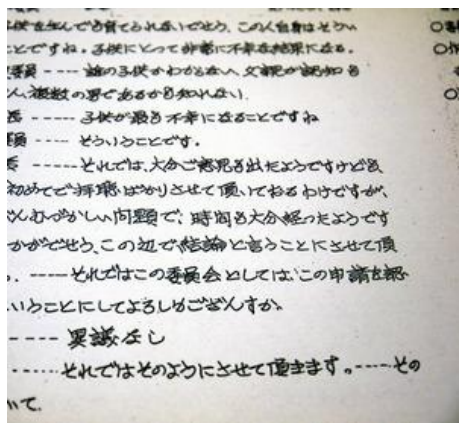 供を生んでも育てられないでせう、この人自身はそうい
ことですね。子供にとって非常に不幸な結果になる。
委員 ---- 誰の子供かわからない、父親が認知も
ん、複数の男であるかも知れない。
長 ----- 子供が最も不幸になることですね
員 ---- そういうことです。
長 -----それでは、大分ご意見も出たようですけども
初めてで拝聴ばかりさせて頂いておるわけですが、
んむづかしい問題で、時間も大分経ったようです
かがでせう、この辺で結論と言うことにさせて頂
。-----それではこの委員会としては、この申請を認
いうことにしてよろしゅござんすか。
---- 異議なし
-----それではそのようにさせて頂きます。----その
いて。